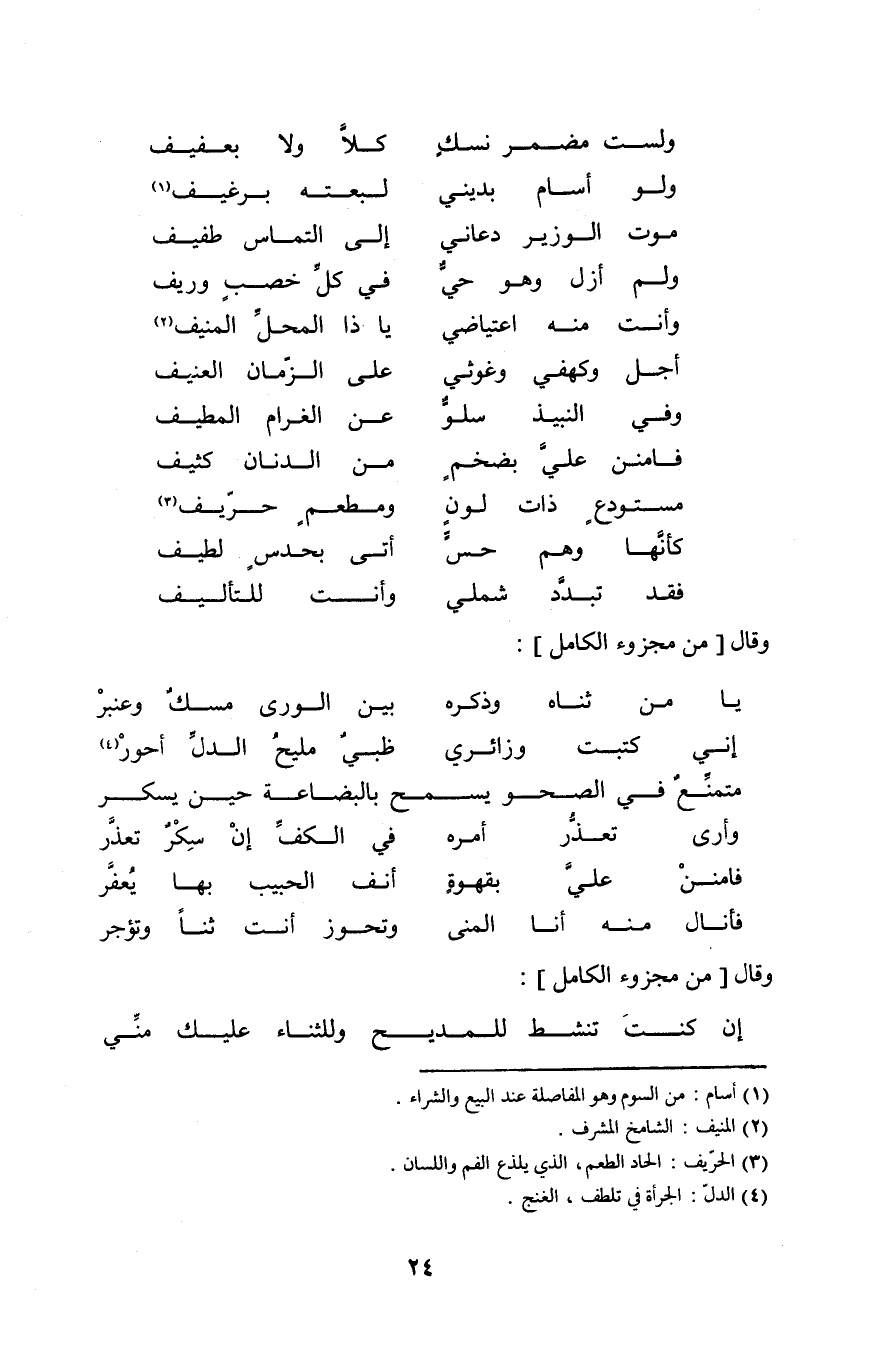 ولست مضمر نسكٍ كلاَّ ولا بعفيف
ولو أسام بديني لبعته برغيف(١)
موت الوزير دعاني إلى التماس طفيف
ولم أزل وهو حيٌّ في كلِّ خصبٍ وريف
وأنت منه اعتياضي يا ذا المحلِّ المنيف(٢)
أجل وكهفي وغوثي على الزّمان العنيف
وفي النبيذ سلوٌّ عن الغرام المطيف
فامنن عليَّ بضخمٍ من الدنان كثيف
مستودعٍ ذات لونٍ ومطعمٍ حرّيف(٣)
كأنَّها وهم حسٍّ أتى بحدسٍ لطيف
فقد تبدَّد شملي وأنت للتأليف
وقال [ من مجزوء الكامل ] :
يا من ثناه وذكره بين الورى مسكٌ وعنبرْ
إني كتبت وزائري ظبيٌ مليحُ الدلِّ أحورْ(٤)
متمنِّعٌ في الصحو يسمح بالبضاعة حين يسكر
وأرى تعذُّر أمره في الكفِّ إنْ سِكْرٌ تعذَّر
فامننْ عليَّ بقهوةٍ أنف الحبيب بها يُعفَّر
فأنال منه أنا المنى وتحوز أنت ثناً وتؤجر
وقال [ من مجزوء الكامل ] :
إن كنتَ تنشط للمديح وللثناء عليك منِّي
(١) أسام : من السوم وهو المفاصلة عند البيع والشراء .
(٢) المنيف : الشامخ المشرف .
(٣) الحرّيف : الحاد الطعم، الذي يلذع الفم واللسان .
(٤) الدلّ : الجرأة في تلطف ، الغنج .
٢٤